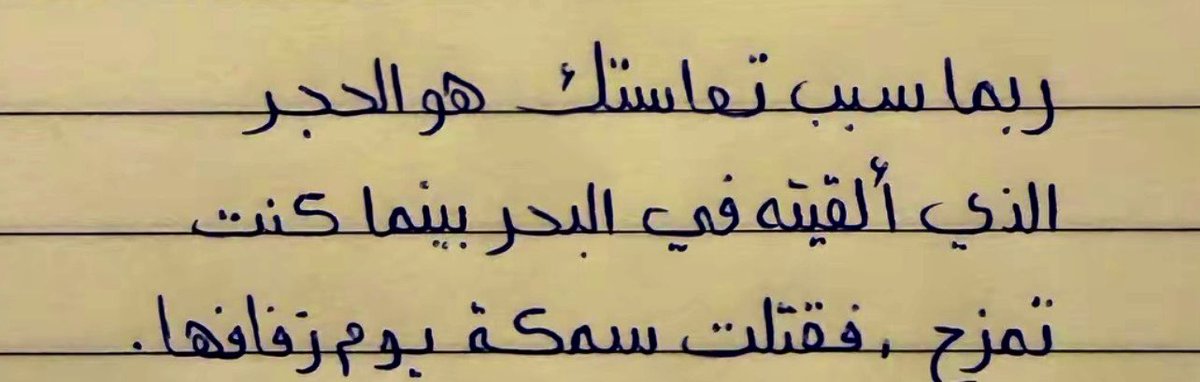 ربما سبب تعاستك هو الحجر
الذي ألقيته في البحر بينما كنت
تمزح , فقتلت سمكة يوم زفافها.